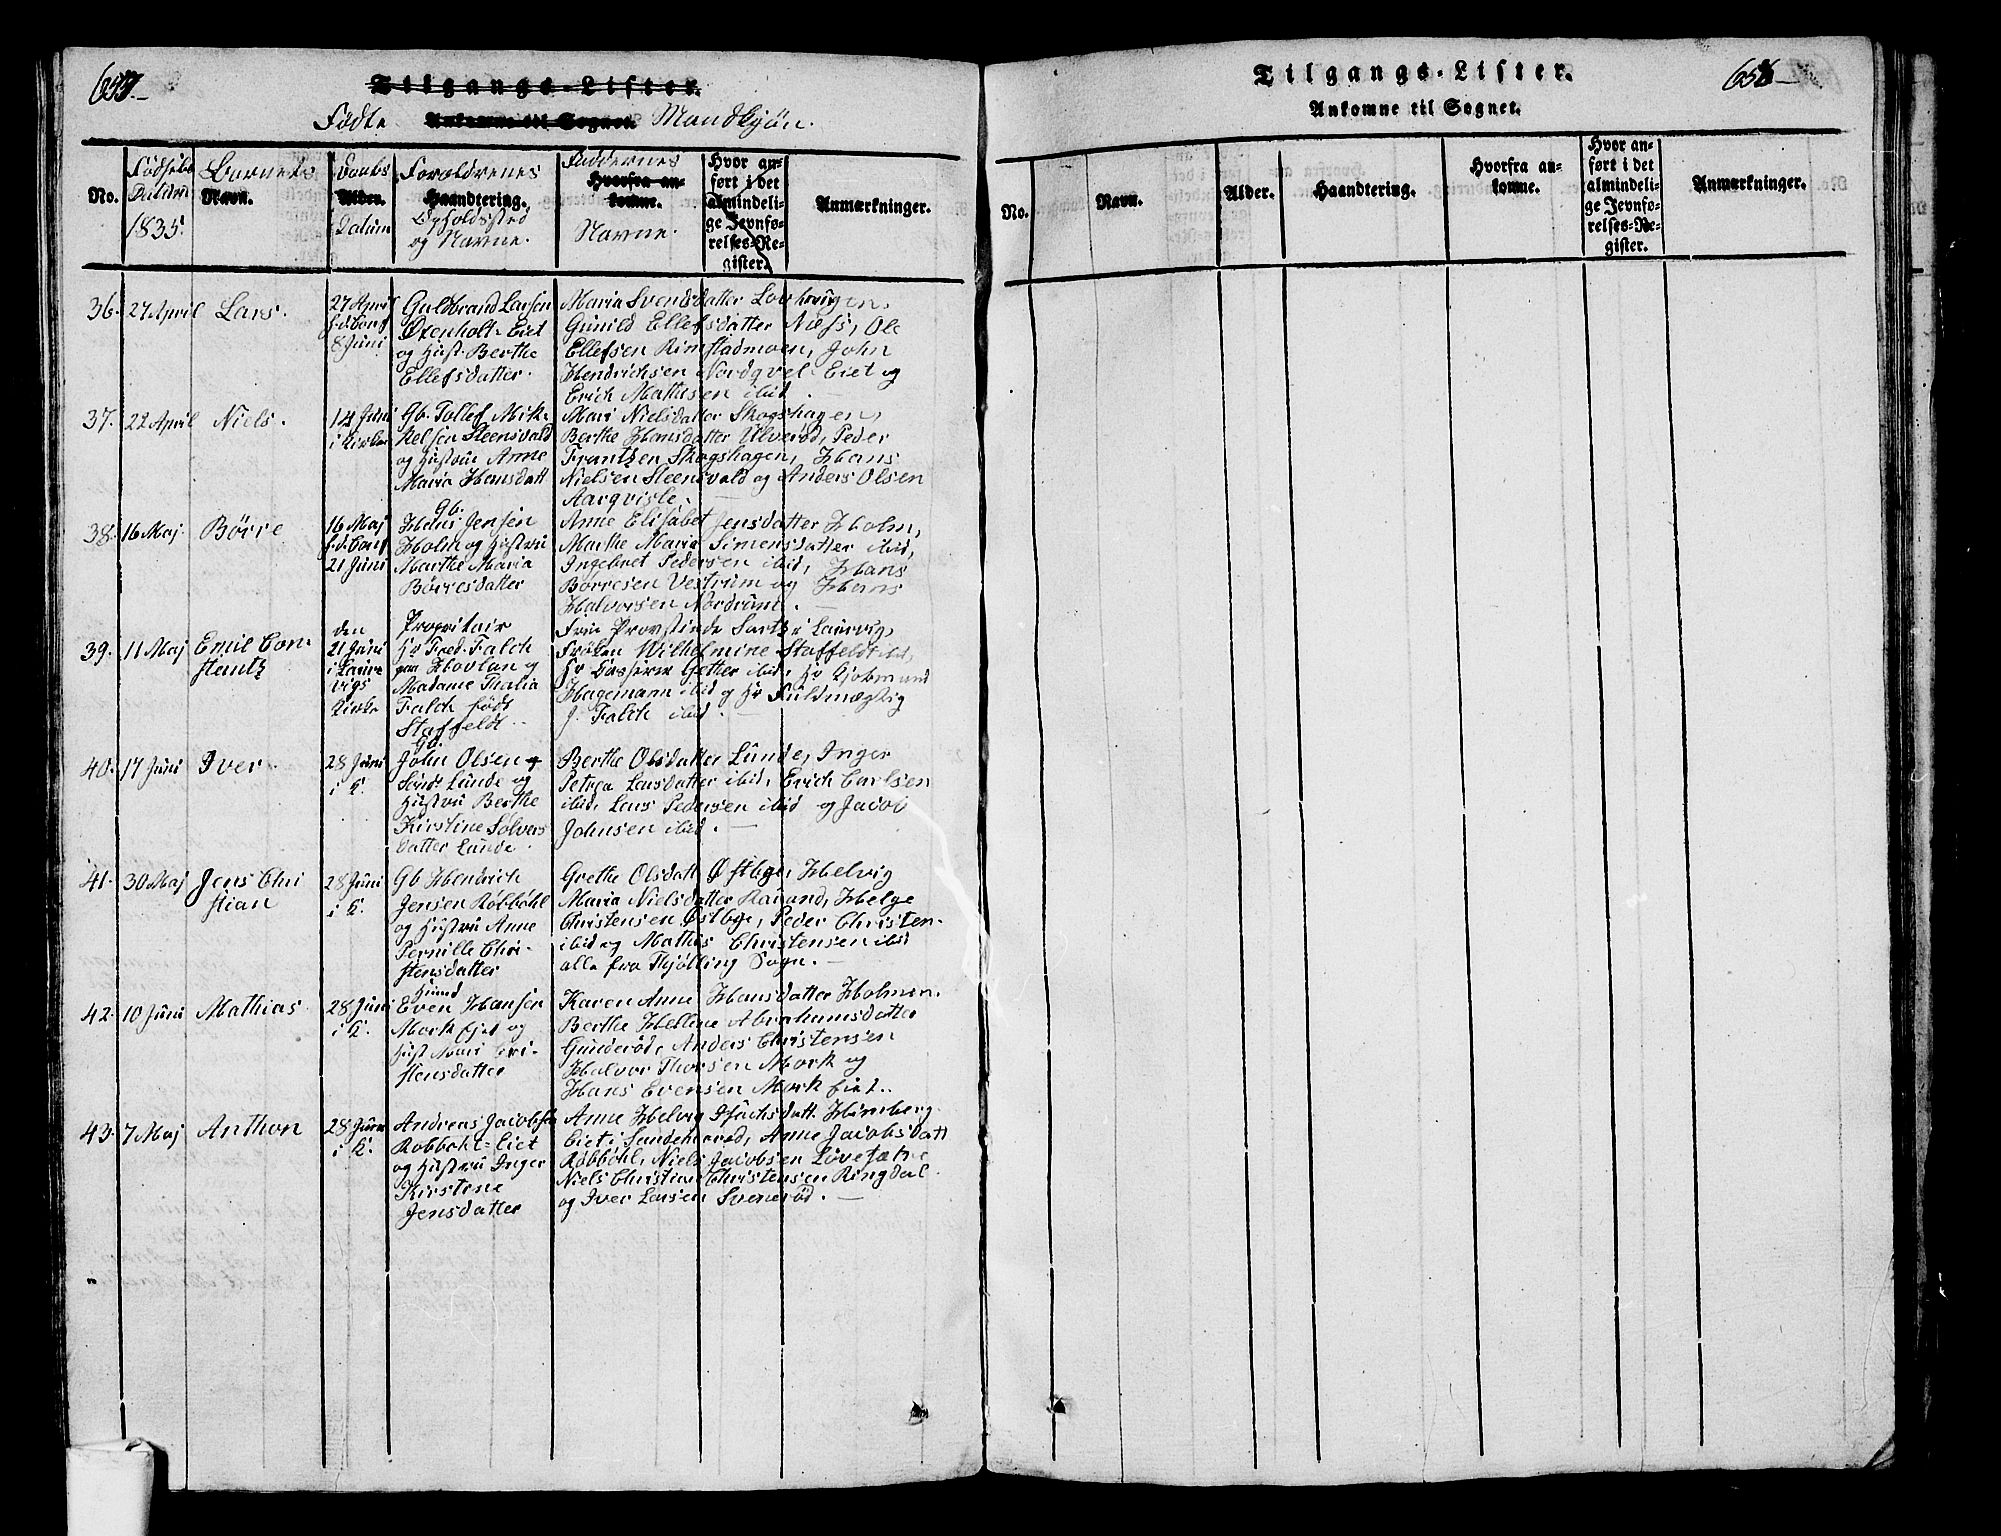 Tilgangs-Lister.
Fødte Ankomne til Sognet. Mandkjøn.
No.
Fødsels Datum 1835.
Barnets Navn.
Daabs Alder. Datum
Forældrenes Haandtering. Opholdssted og Navne.
Faddernes Hvorfra ankomne. Navne.
Hvor anført i det almindelige Jevnførelses-Register.
Anmærkninger.
36. 27 April Lars.
27 April
h.d. Conf
8 Juni
Guldbrand Larsen
Oxenholt-Eiet
og Hust. Berthe
Ellefsdatter.
Maria Svendsdatter
Gunild Ellefsdatter Næss, Ole
Ellefsen Rimstadmoen, John
Hendrichsen Nordqvel-Eiet og
Erich Mathisen ibid.
37. 22 April Niels.
14 Juni
i Kirken
Gb. Tollef Mik-
kelsen Steensvald
og Hustru Anne
Maria Hansdatt
Mari Nielsdatter Skogshagen,
Berthe Hansdatter Ulverød, Peder
Frantzen Skogshagen, Hans
Nielsen Steensvald og Anders Olsen
Aarqvisle.
38. 16 Maj. Børre
16 Maj
h.d. Conf
21 Juni
Gb.
Hans Jensen
Holm og Hustru
Marthe Maria
Børresdatter
Anne Elisabet Jensdatter Holm,
Marthe Maria Simensdatter ibid,
Ingebret Pedersen ibid, Hans
Borresen Vestrum og Hans
Halvorsen Nordrum.
39. 11 Maj Emil Con-
stantz
den
21 Juni
i Laur-
vigs
Kirke
Propritair
Hr Fred. Falch
paa Hovlan og
Madame Thalia
Falch født
Staffeldt.
Frue Provstinde Sartz i Laurvig,
Frøken Wilhelmine Staffeldt ibid,
Hr Casserer Gether ibid, Hr Kjøbmand
Hagemann ibid og Hr Fuldmægtig
J. Falch ibid.
40. 17 Juni Iver.
28 Juni
i K.
Gb
John Olsen
Lunde og
Hustru Berthe
Kirstine Sølvers
datter Lunde.
Berthe Olsdatter Lunde, Inger
Petrea Larsdatter ibid, Erich Carlsen
ibid, Lars Pedersen ibid og Jacob
Johnsen ibid.
41. 30 Maj Jens Chri
stian
28 Juni
i K.
Gb Hendrich
Jensen Røbbohl
og Hustru Anne
Pernille Chri-
stensdatter
Grethe Olsdatt Østbye, Helvig
Maria Nielsdatter Rauand, Helge
Christensen Østbye, Peder Christen-
ibid og Mathis Christensen ibid
alle fra Thjølling Sogn.
42. 10 Juni Mathias
28 Juni
i K.
Huusmd
Even Hansen
Mork Ejet og
Hust Mari Cri-
stensdatter
Karen Anne Hansdatter Holmen.
Berthe Hellene Abrahamsdatter
Gunderød, Anders Christensen
Halvor Thorsen Mork og
Hans Evensen Mork Eiet.
43. 7 Maj Anthon
28 Juni
i K.
Andreas Jacobsen
Robbohl-Eiet
og Hustru Inger
Kirstine
Jensdatter
Anne Helvig Isachsdatt. Himberg-
Eiet i Sandeherred, Anne Jacobsdatt
Røbbohl, Niels Jacobsen
Niels Christian Christensen Ringdal
og Iver Larsen Svenerød.
Tilgangs-Lister.
656
Ankomne til Sognet.
No.
Navn.
Alder.
Haandtering.
Hvorfra ankomne.
Hvor anført i det almindelige Jevnførelses-Register.
Anmærkninger.